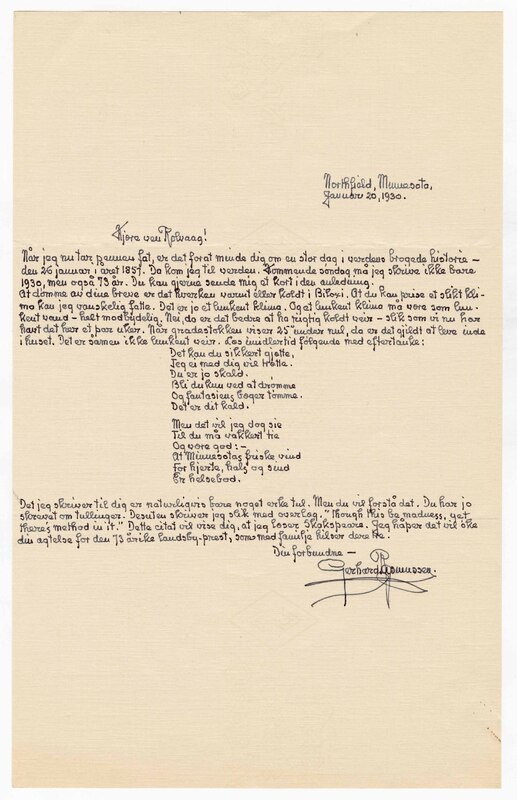 Northfield, Minnesota,
Januar 20, 1930.
Kjære ven Rølvaag!
Når jeg nu tar pennen fat, er det forat minde dig om en stor dag i verdens brogede historie –
den 26 januar i året 1857. Da kom jeg til verden. Kommende søndag må jeg skrive ikke bare
1930, men også 73 år. Du kan gjerne sende mig et kort i den anledning.
At dømme av dine breve er det hverken varmt eller koldt i Biloxi. At du kan prise et slikt kli-
ma kan jeg vanskelig fatte. Det er jo et lunkent klima. Og et lunkent klima må være som lun-
kent vand – helt modbydelig. Nei, da er det bedre at ha rigtig koldt veir – slik som vi nu har
havt det her et par uker. Når gradestokken viser 25° under nul, da er det gjildt at leve inde
i huset. Det er såmen ikke lunkent veir. Læs imidlertid følgende med eftertanke:
Det kan du sikkert gjette,
Jeg ei med dig vil trætte.
Du er jo skald.
Bli du kun ved at drømme
Og fantasiens bæger tømme.
Det er dit kald.
Men det vil jeg dog sie
Til du må vakkert tie
Og være god: –
At Minnesotas friske vind
For hjerte, hals og sind
Er helsebod.
Det jeg skriver til dig er naturligvis bare noget erke tul. Men du vil forstå det. Du har jo
skrevet om tullinger. Desuten skriver jeg slik med overlæg. "Though this be madness, yet
there's method in it." Dette citat vil vise dig, at jeg læser Shakspeare. Jeg håper det vil øke
din agtelse for den 73 årike landsby-prest, som med familje hilser dere
Din forbundne –
Gerhard Rasmussen.